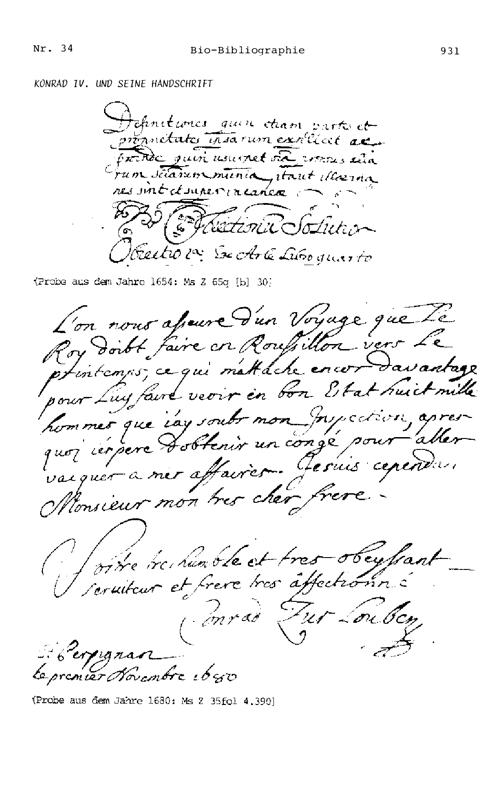 Nr. 34
Bio-Bibliographie
931
KONRAD IV. UND SEINE HANDSCHRIFT
Definitiones quin etiam partes et
proprietates ipsarum explicet ac
proinde quin usurpet
rum scientiarum munia, itaut illae
nes sint et supervacaneae
Obiectionum Solutio
Obiectio 1a. Ex Arte Libro quarto
(Probe aus dem Jahre 1654: Ms Z 65q [b] 30)
L'on nous asseure d'un Voyage que Le
Roy doibt faire en Roussillon vers Le
printemps, ce qui m'attache encor davantage
pour Luy faire veoir en bon Estat huict mille
hommes que i'ay soubs mon Inspection, apres
quoy i'espere d'obtenir un congé pour aller
vacquer a mes affaires. Je suis cependant
Monsieur mon tres cher frere -
Vostre tres humble et tres obeyssant
serviteur et frere tres affectionné
Conrad Zur Lauben
Perpignan
le premier Novembre 1680
(Probe aus dem Jahre 1680: Ms Z 35fol 4.390)